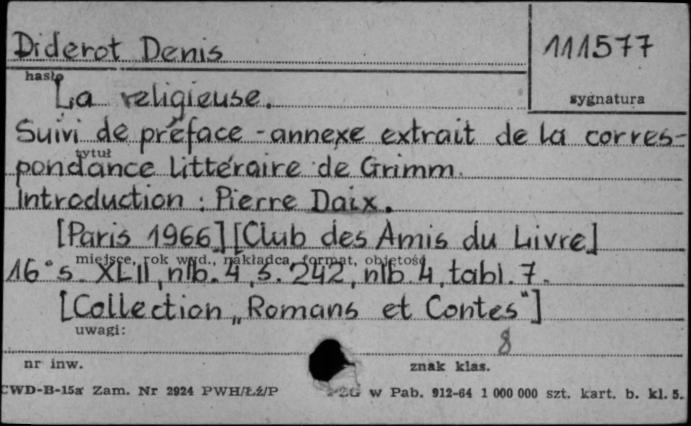 Diderot Denis
111577
hasło
La religieuse.
sygnatura
Suivi de préface - annexe extrait de la corres-
tytuł
pondance littéraire de Grimm.
Introduction : Pierre Daix.
[Paris 1966] [Club des Amis du Livre]
miejsce, rok wyd., nakładca, format, objętość
16° s. XLII, nlb. 4, s. 242, nlb. 4, tabl. 7.
[Collection „Romans et Contes"]
uwagi:
8
nr inw.
znak klas.
CWD-B-15a Zam. Nr 2924 PWH/Łź/P w Pab. 912-64 1 000 000 szt. kart. b. kl. 5.